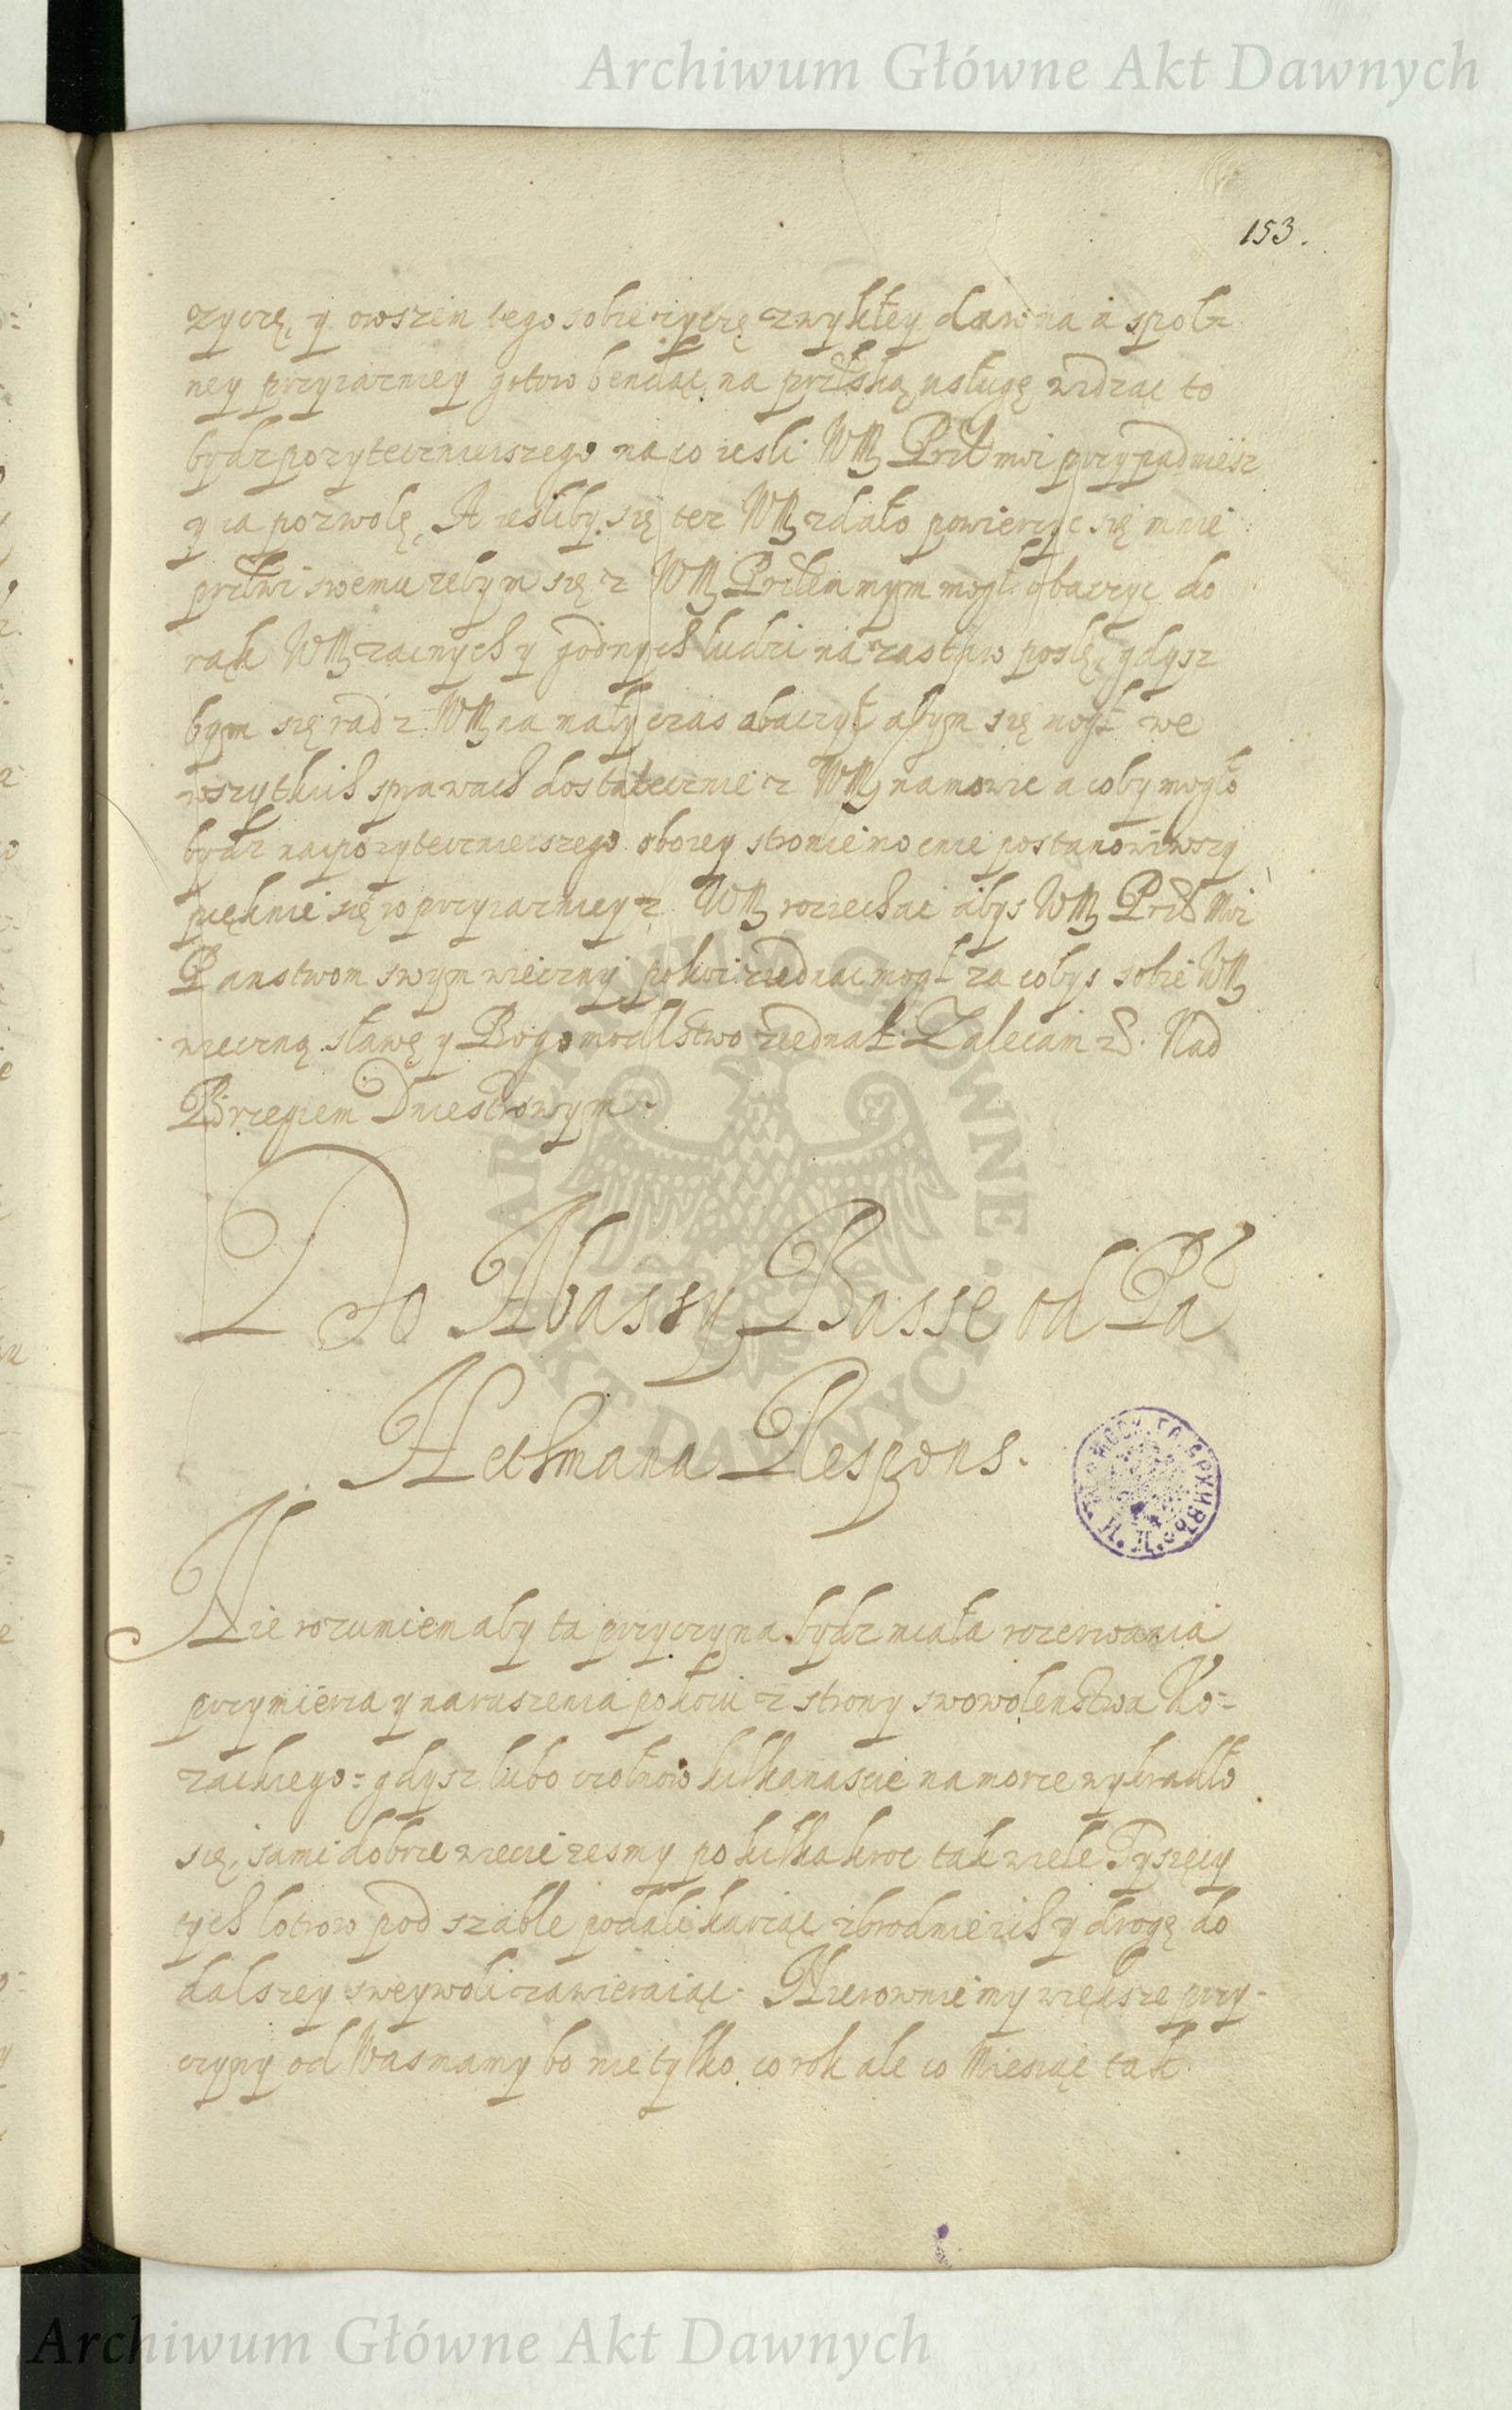 Archiwum Główne Akt Dawnych
153.
zyczę, y owszem tego sobie zyczę zwykłey dawna a spol=
ney przyiazniey gotow bendąc, na przłską usługę widząc to
bydz pozytecznieiszego na co iesli WM Przłmoi przypadniesz
y ia pozwolę, A iesliby się tez WM zdało powierzyc się mnie
przłwi swemu zebym się z WM Przłem mym mogł obaczyc do
rąk WM zacnych y godnych ludzi na zastaw poslę, gdysz
bym się rad z WM na mały czas obaczył abym się mogł we
wszytkich sprawach dostatecznie z WM namowic a coby mogło
bydz napozytecznieiszego oboiey stronie mocnie postanowiwszy
pięknie się w przyiazniey z WM roziechac abys WM Przł Moi
Panstwom swym wieczny pokoi ziednac mogł za cobys sobie WM
wieczną sławę y Bogomodlstwo ziednał. Zalecam &. Nad
Brzegiem Dniestrowym.
Do Abassy Basse od Pa
Hethmana Respons.
Nie rozumiem aby ta przyczyna bydz miała rozerwania
przymierza y naruszenia pokoiu z strony swowolenstwa Ko=
zackiego= gdysz lubo czołnow kilkanascie na morze wykradło
się, sami dobrze wiecie zesmy po kilkakroc tak wiele Tysięcy
tych łotrow pod szable podali karząc zbrodnie ich y drogę do
dalszey sweywoli zawieraiąc. Nierownie my większe przy-
czyny od Was mamy bo nie tylko co rok ale co Miesiąc tak
Archiwum Główne Akt Dawnych